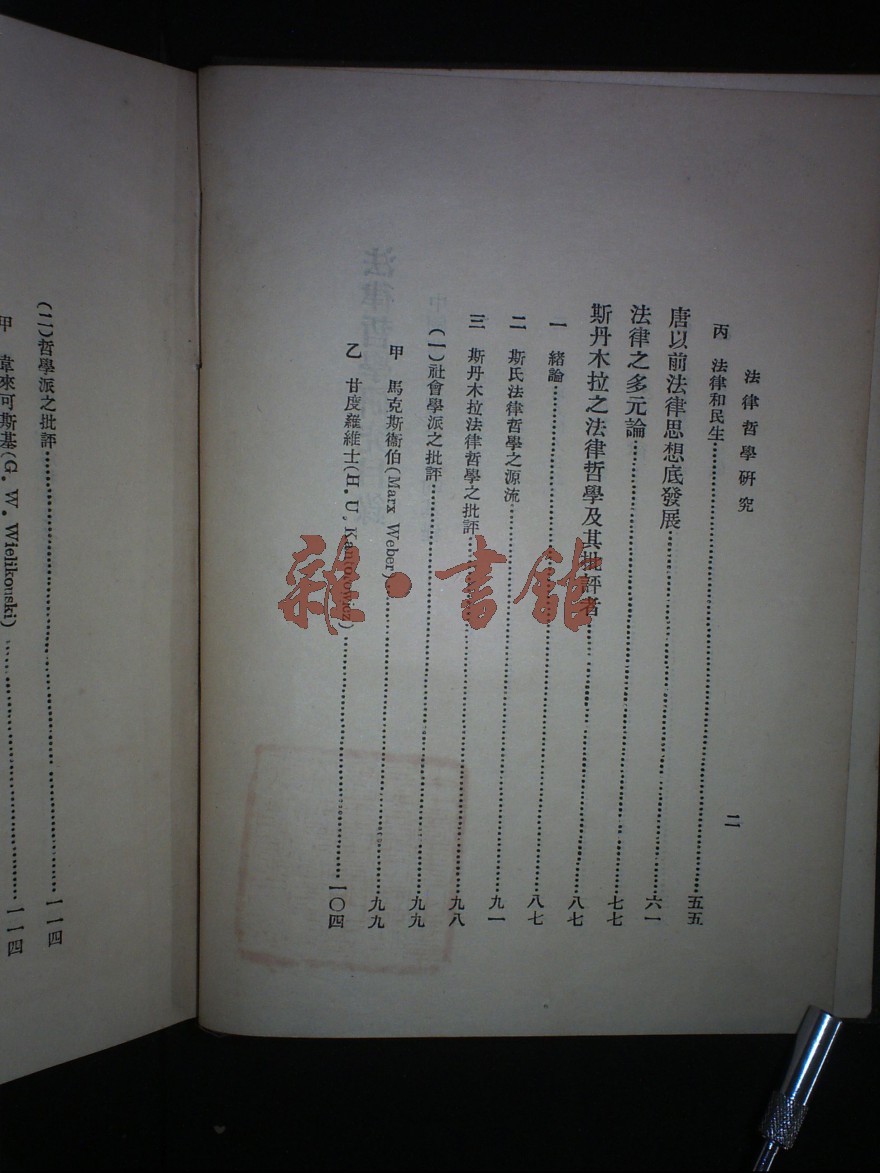 法律哲學研究
二
丙 法律和民生……五五
唐以前法律思想底發展……六一
法律之多元論……七七
斯丹木拉之法律哲學及其批評者……八七
一 緒論……八七
二 斯氏法律哲學之源流……九一
三 斯丹木拉法律哲學之批評……九八
(一)社會學派之批評……九九
甲 馬克斯衞伯(Marx Weber)……九九
乙 甘度羅維士(H. U, Kantorowicz)……一〇四
(二)哲學派之批評……一一四
甲 韋來可斯基(G. W. Wielikouski)……一一四
雜·書館